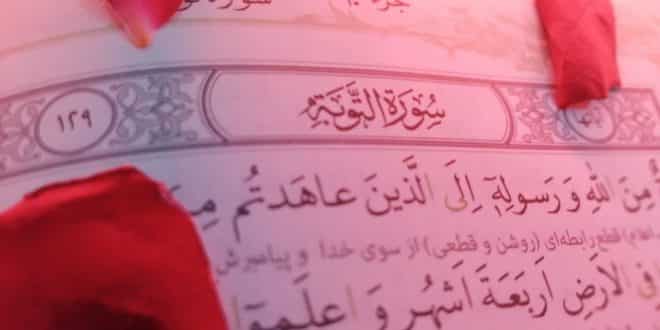 جزء
سورة
١٢٩ سُورَةُ التَّوْبَةِ
مِنَ اللهِ وَ رَسولِهٖٓ اِلَى الَّذينَ عاهَدتُم مِنَ
قطع رابطه‌ای (روشن و قطعی) از سوی خدا و پیامبرش
فِی الاَرضِ اَربَعَةَ اَشهُرٍ وَ اعلَموٓا